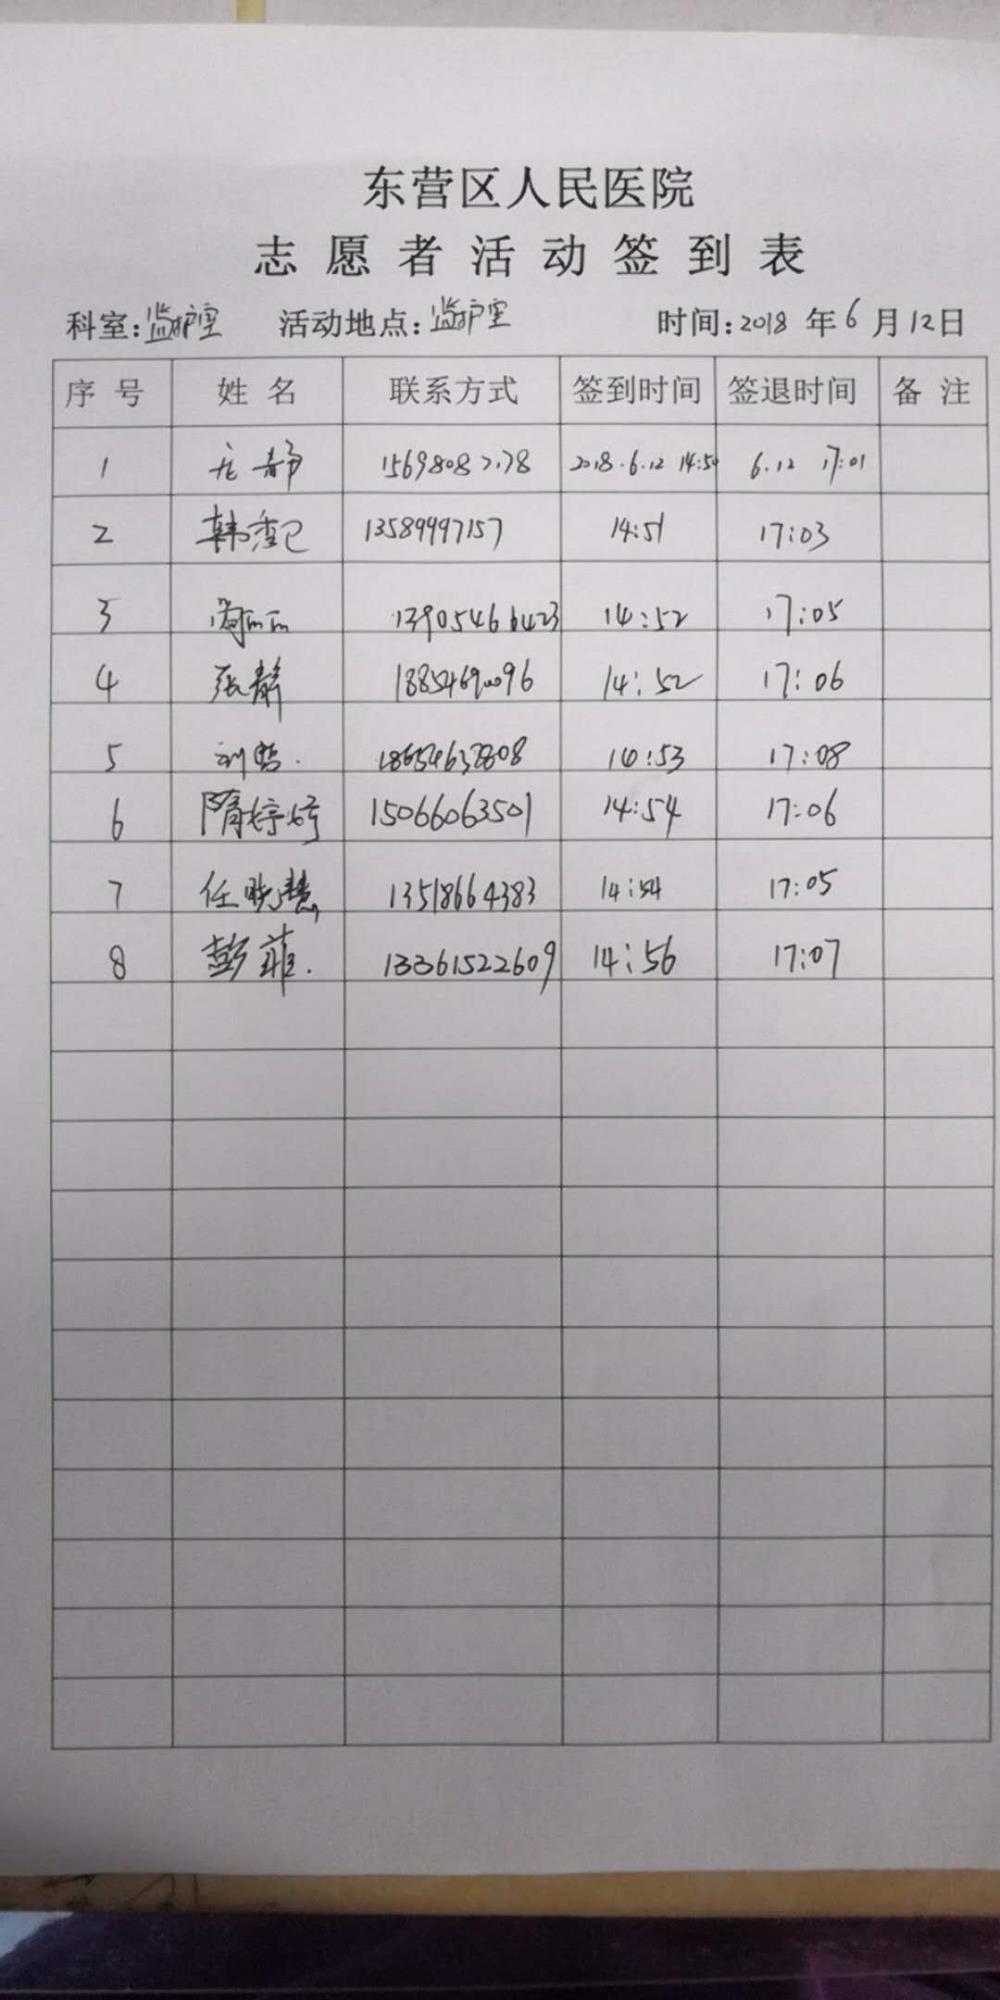 东营区人民医院
志愿者活动签到表
科室:监护室 活动地点:监护室 时间:2018年6月12日
序号 姓名 联系方式 签到时间 签退时间 备注
1 静 2018.6.12 14:50 6.12 17:01
2 韩 13589997157 14:51 17:03
3 13905466423 14:52 17:05
4 张静 18854690096 14:52 17:06
5 刘哲. 14:53 17:08
6 隋婷婷 15066063501 14:54 17:06
7 任晓慧 13518664383 14:54 17:05
8 彭菲. 13361522609 14:56 17:07